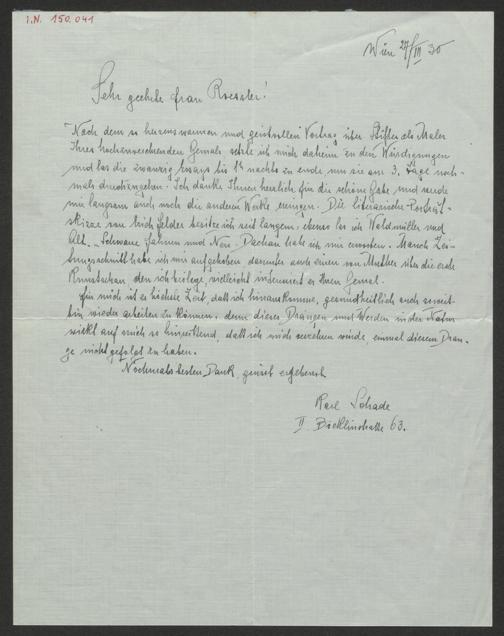 I.N. 150.041
Wien 27/III 30
Sehr geehrte Frau Roessler!
Nach dem so herzenswarmen und geistvollen Vortrag über Stifter als Maler
Ihres Herrn Gemals setzte ich mich daheim zu den Würdigungen
und las die zwanzig Essays bis 1h nachts zu Ende um sie am 3. Tage noch-
mals durchzugehen. Ich danke Ihnen herzlich für die schöne Gabe und werde
mir langsam auch noch die anderen Werke. Die literarische Porträt-
skizze von besitze ich seit langem, ebenso las ich Waldmüller und
Alt. "Schwarze Fahnen und Neu-Dachau habe ich mir erworben. Manch Zei-
tungsschnitt habe ich mir aufgehoben darunter auch einen von Muther über die erste
Kunstschau den ich beilege, vielleicht interessiert es Ihren Gemal.
Für mich ist es höchste Zeit, daß ich hinauskomme, gesundheitlich auch soweit
bin wieder arbeiten zu können, denn dieses Drängen und Werden in der Natur
wirkt auf mich so, daß ich mich würde, einmal diesem Dran-
ge nicht gefolgt zu haben.
Nochmals besten Dank, ergebenst
Karl Schade
II Böcklinstraße 63.